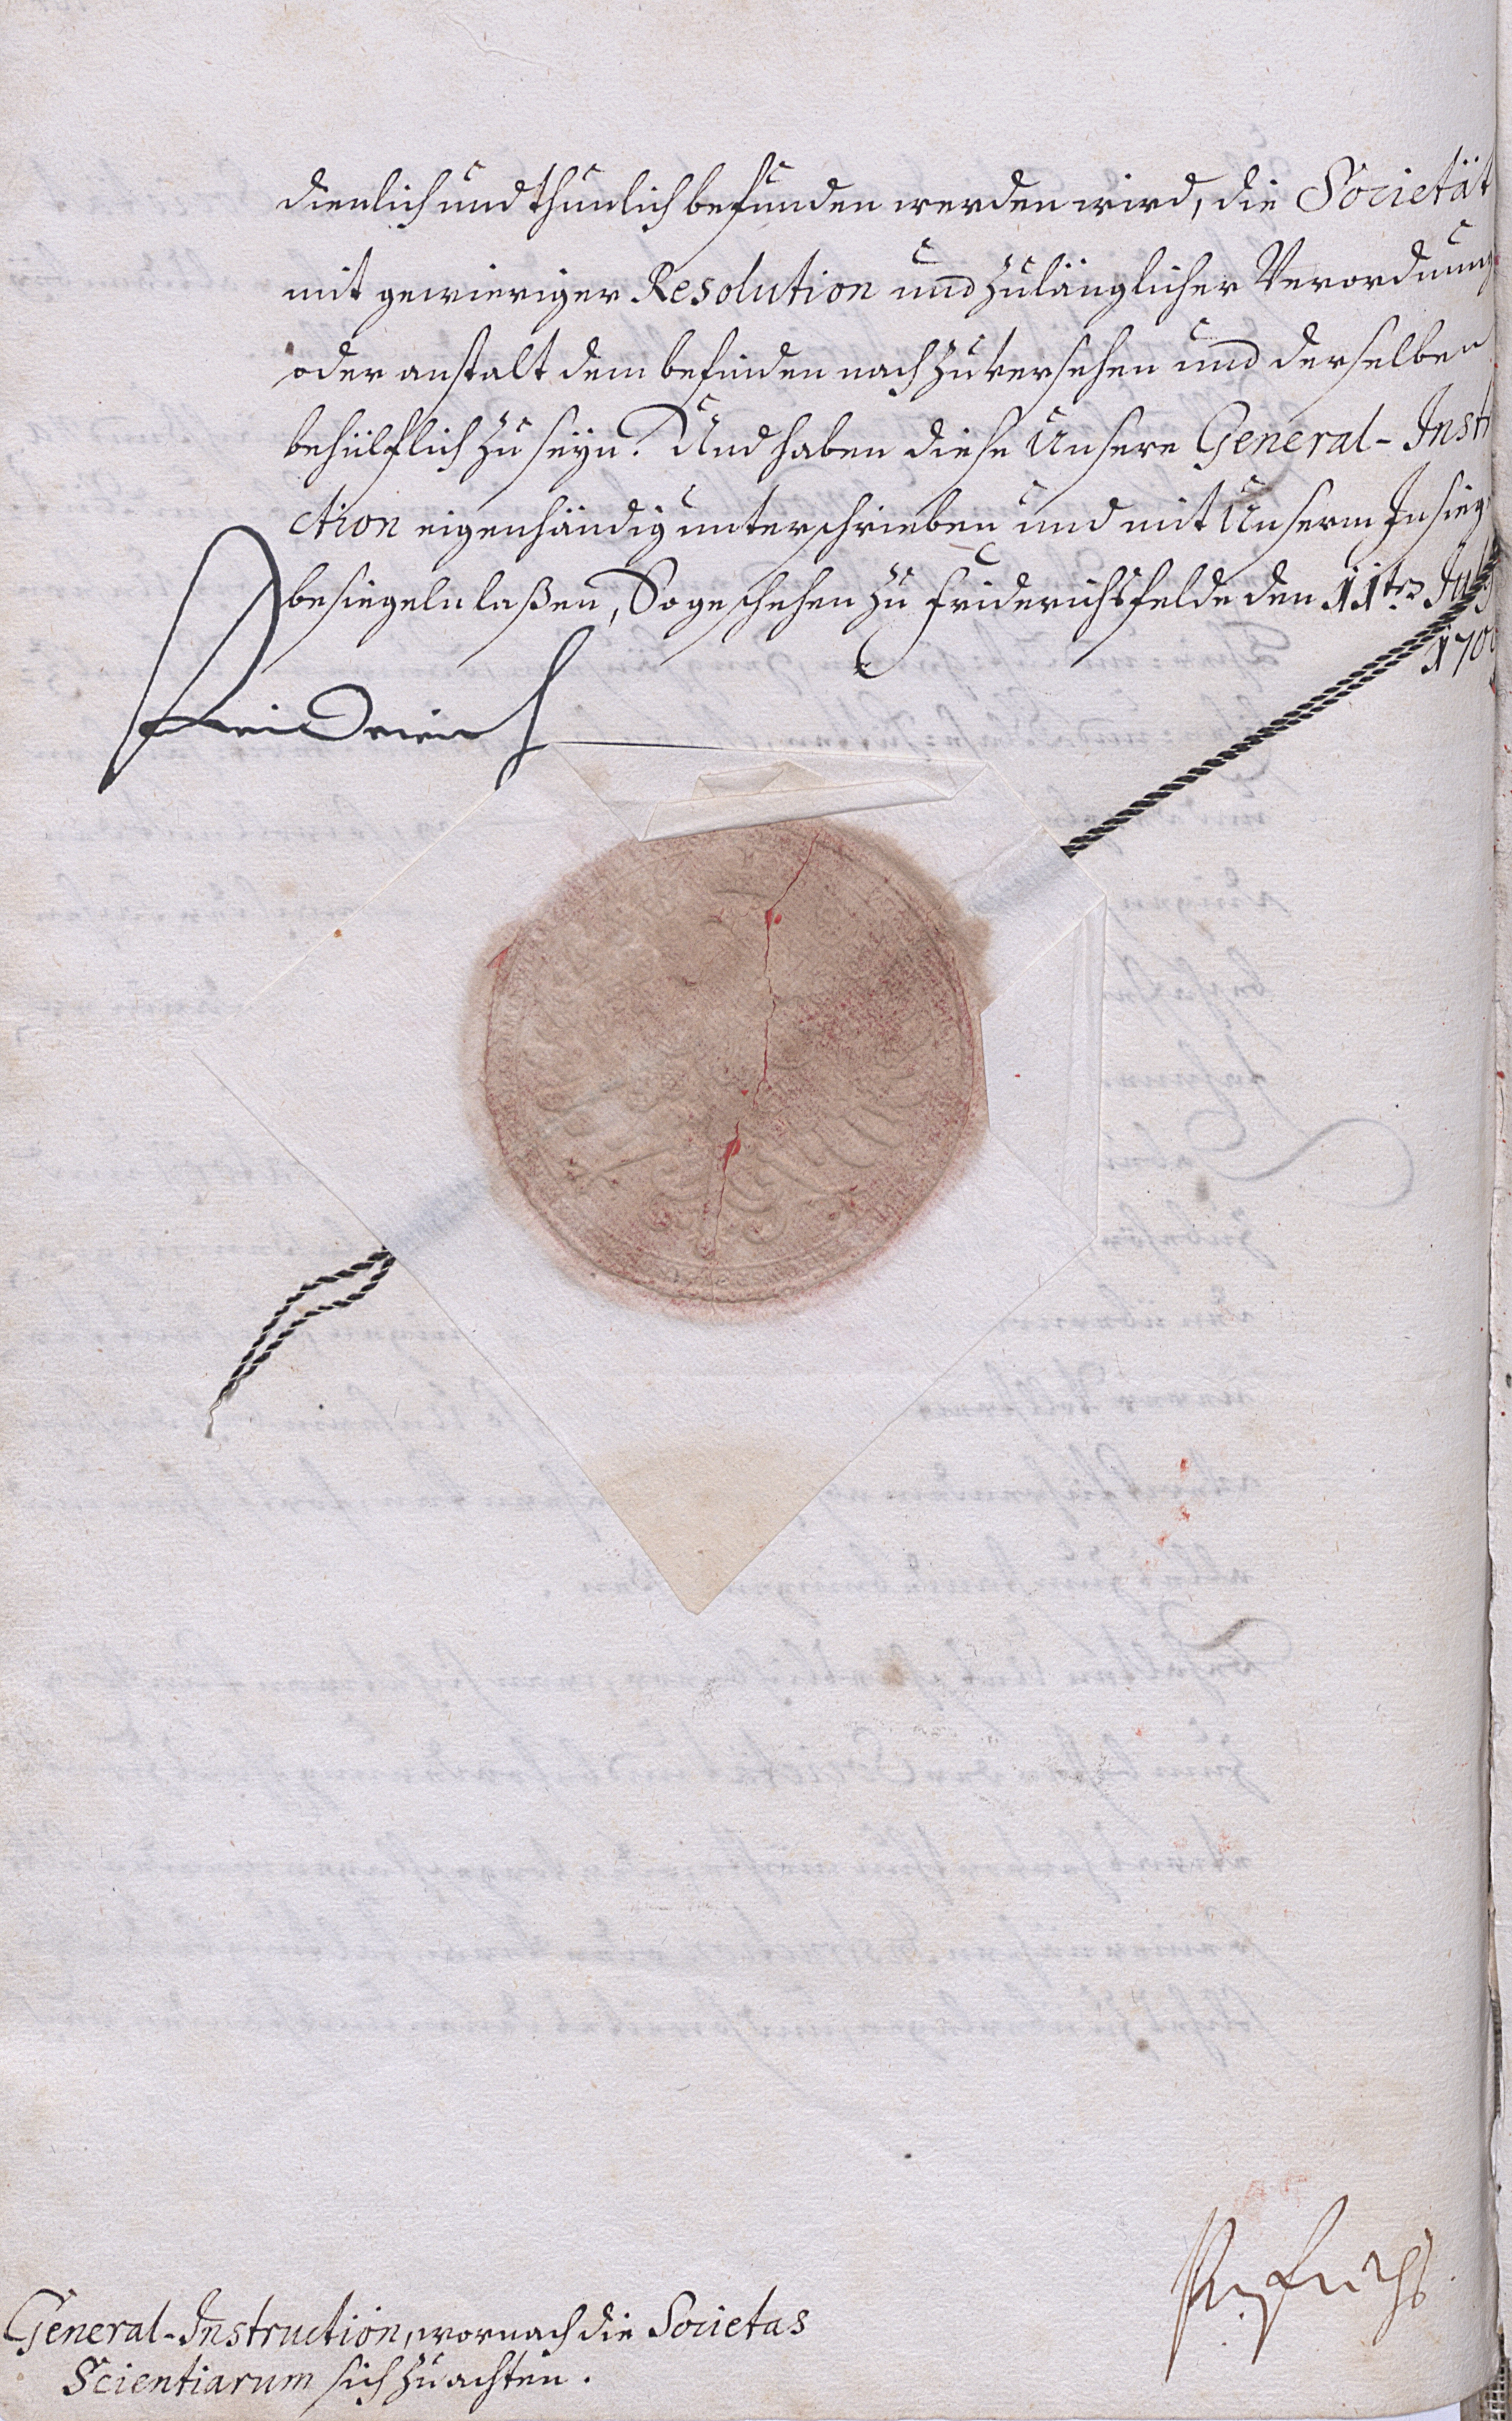 dienlich und thunlich befunden werden wird, die Societät
mit gewieriger Resolution und zulänglicher Verordnung
oder anstalt dem befinden nach zu versehen und derselben
behülflich zu seyn. Und haben diese Unsere General-Instr
ction eigenhändig unterschrieben und mit Unserm Insieg
besiegeln laßen, So geschehen zu Friderichsfelde den 11ten July
170
Friderich
Fuchs
General-Instruction, wornach die Societas
Scientiarum sich zu achten.